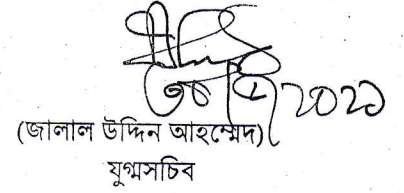 (জালাল উদ্দিন আহম্মেদ)
যুগ্মসচিব